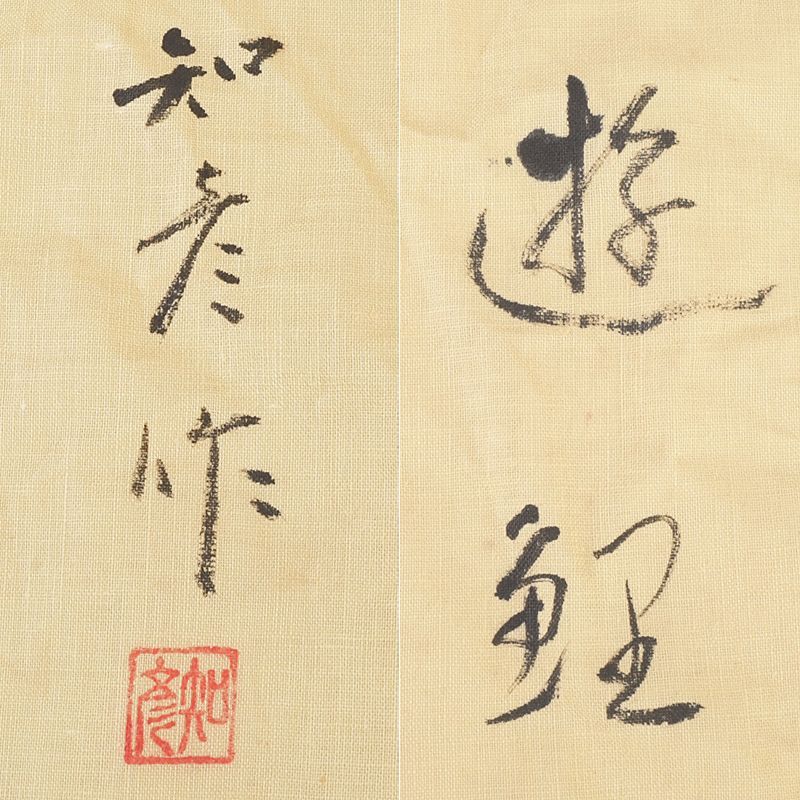 遊鯉
知彦作
知彦